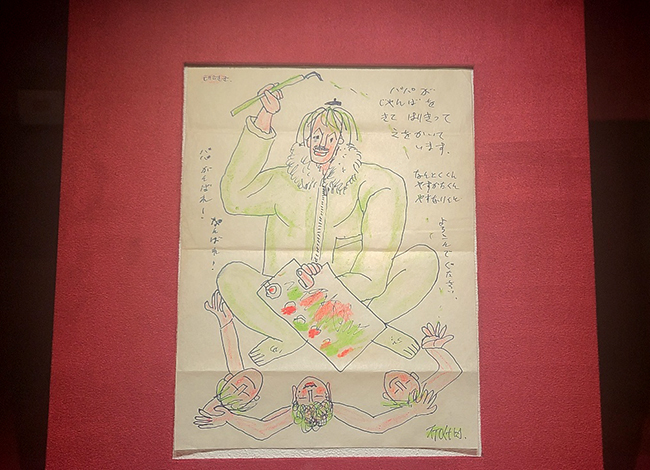 パパが
じゃんばを
きて はりきって
えをかいて
います。
やすかたくん
やすなりくん
よろこんでください。
パパがんばれ!
がんばれ!